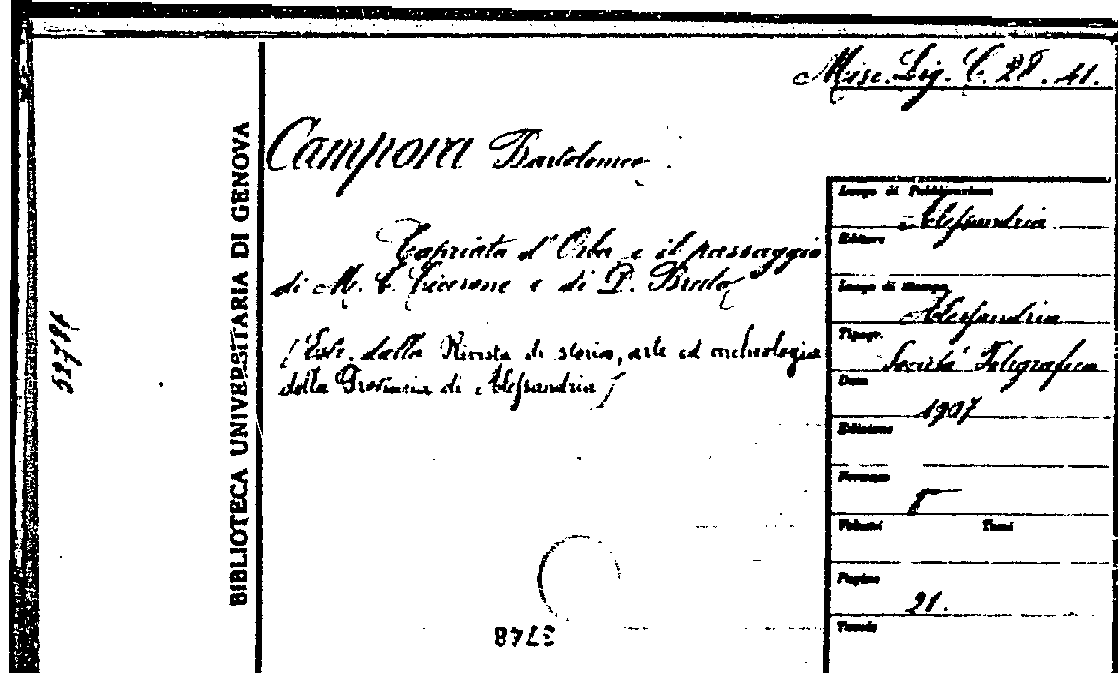 Misc. Lig. C. 28. 41.
BIBLIOTECA UNIVERSITARIA DI GENOVA
Campora Bartolomeo.
Capriata d'Orba e il passaggio
di M. T. Cicerone e di D. Bruto
[Estr. dalla Rivista di storia, arte ed archeologia
della Provincia di Alessandria]
Luogo di Pubblicazione
Alessandria
Editore
Luogo di stampa
Alessandria
Tipogr.
Società Poligrafica
Data
1907
Edizione
Formato
8
Volumi Tomi
Pagine
21.
Tavole
3748